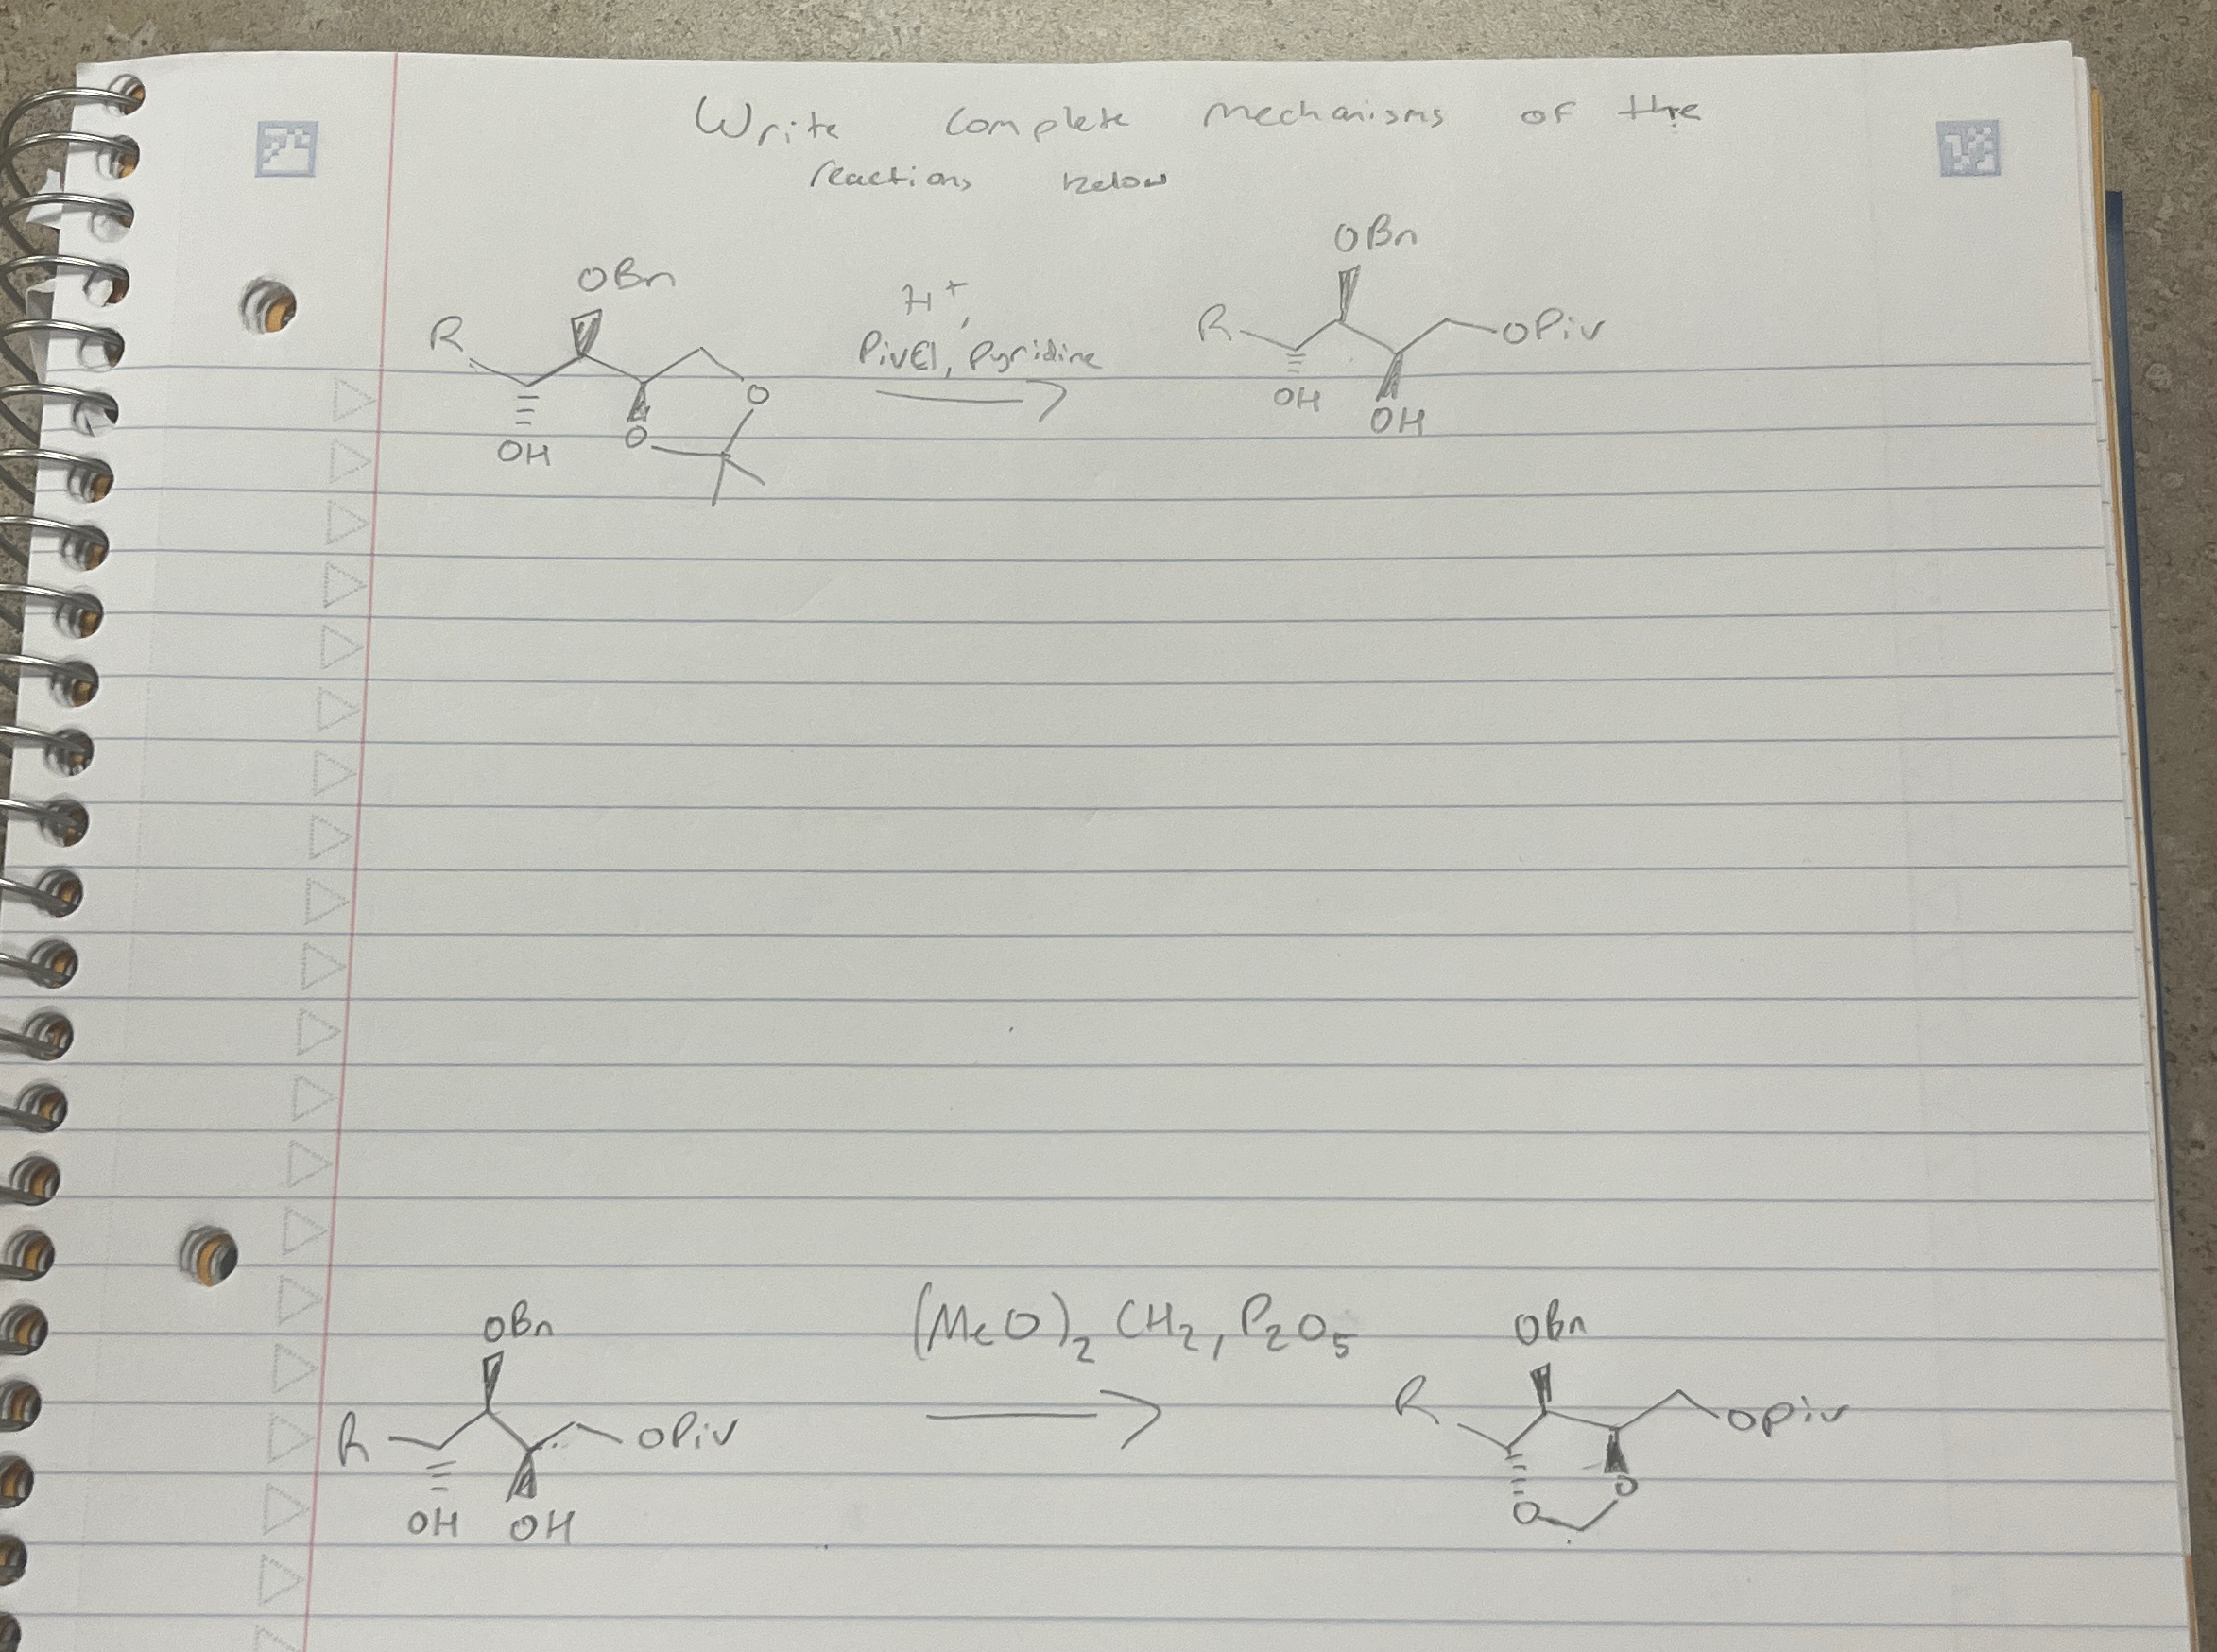 Write complete mechanisms of the
reactions below
OBn
R
OH
O
O
H+,
PivCl, Pyridine
OBn
R
OPiv
OH
OH
OBn
R
OPiv
OH
OH
(MeO)2 CH2, P2O5
OBn
R
OPiv
O
O